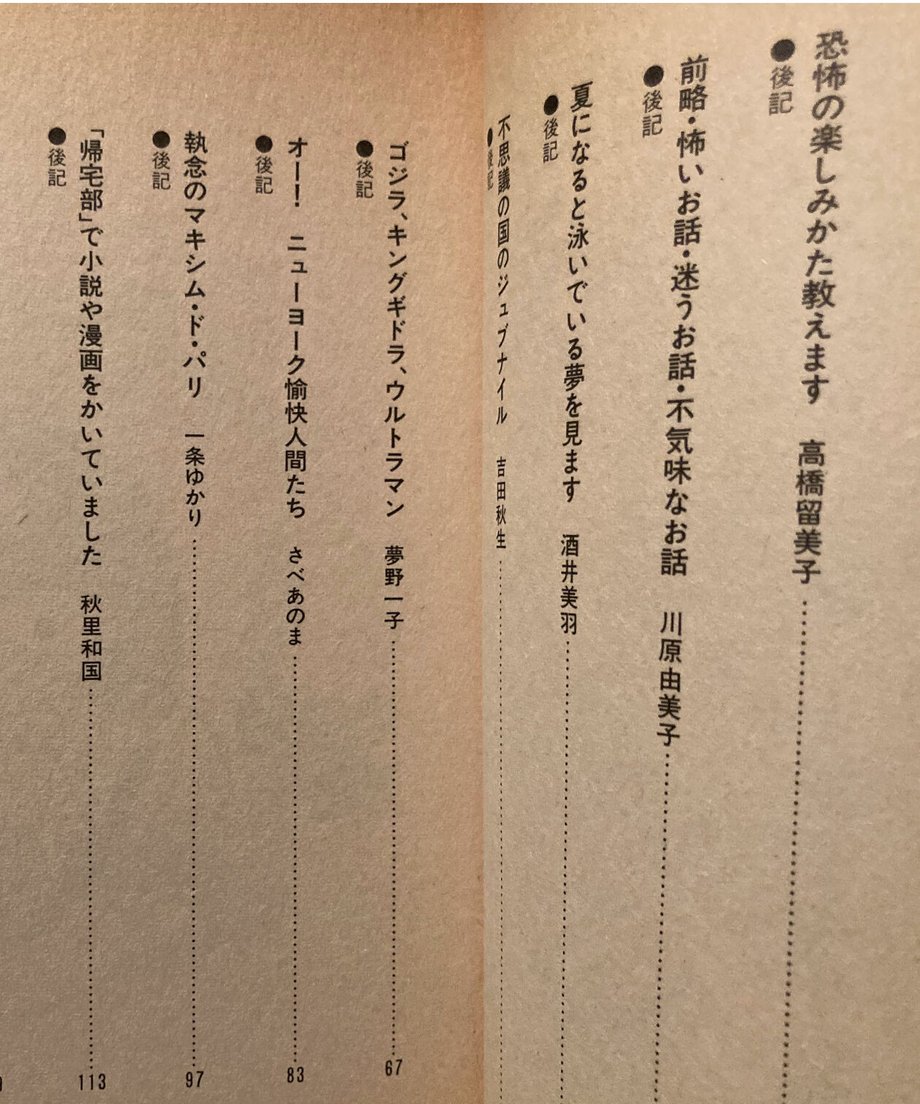 恐怖の楽しみかた教えます　高橋留美子
●後記
前略・怖いお話・迷うお話・不気味なお話　川原由美子
●後記
夏になると泳いでいる夢を見ます　酒井美羽
●後記
不思議の国のジュブナイル　吉田秋生
●後記
ゴジラ、キングギドラ、ウルトラマン　夢野一子 67
●後記
オー！　ニューヨーク愉快人間たち　さべあのま 83
●後記
執念のマキシム・ド・パリ　一条ゆかり 97
●後記
「帰宅部」で小説や漫画をかいていました　秋里和国 113
●後記